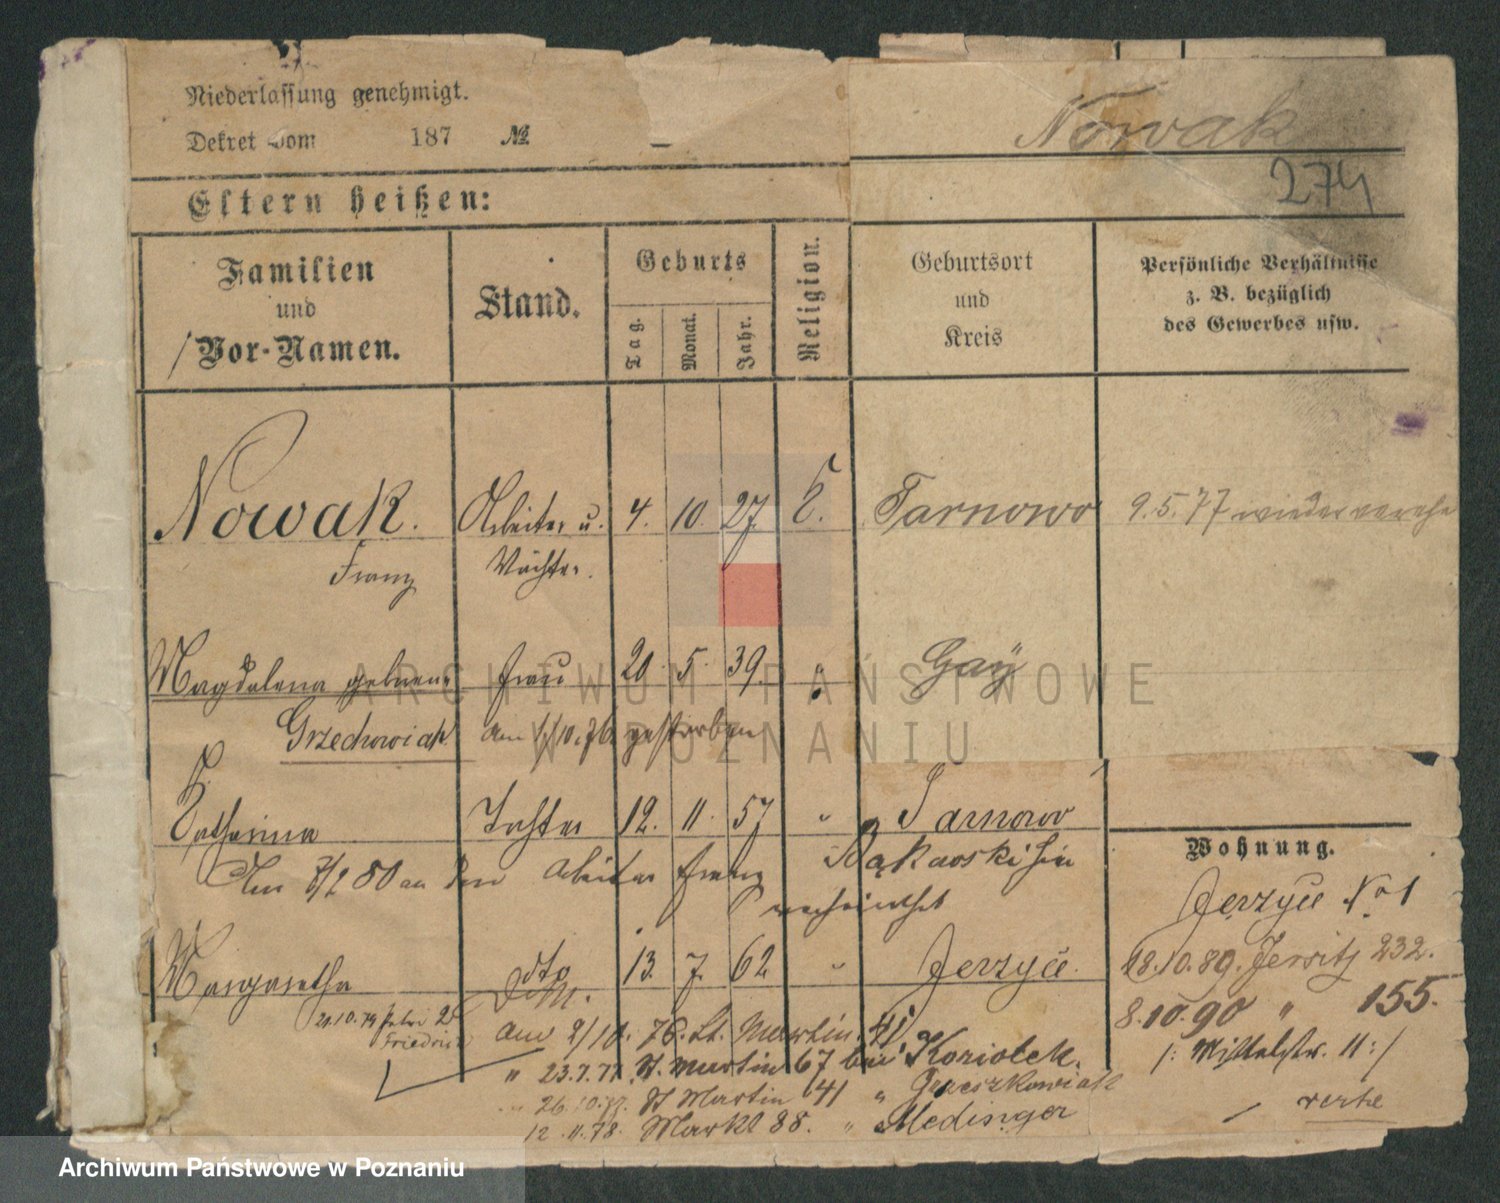 Niederlassung genehmigt.
Dekret vom 187 №
Nowak
274
Eltern heißen:
Familien
und
Vor-Namen.
Stand.
Geburts
Tag.
Monat.
Jahr.
Religion.
Geburtsort
und
Kreis
Persönliche Verhältnisse
z. B. bezüglich
des Gewerbes usw.
Nowak. Arbeiter u. 4. 10. 27 Tarnowo 9.5.77 wieder
Franz Wächter.
Magdalena geborene Frau 20. 5. 39. " Gay
Grzechowiak am 1/10. 76. gestorben
Catharina Tochter 12. 11. 57 " Tarnowo
Am 80 an den Arbeiter Franz Bąkowski hier
verheirathet
Wohnung.
Jerzyce No 1
Margaretha dto 13. 7. 62 " Jerzyce.
18.10.89. Jersitz 232.
8.10.90 " 155.
/: Mittelstr. 11 :/
21.10.79 Petri
am 2/10. 76. St. Martin 41
" 23.7.77. St. Martin 67 bei Koziolek.
26.10.77. St Martin 41 " Grzeszkowiak
12.11.78. Markt 88. " Medinger
ARCHIWUM PAŃSTWOWE
W POZNANIU
Archiwum Państwowe w Poznaniu